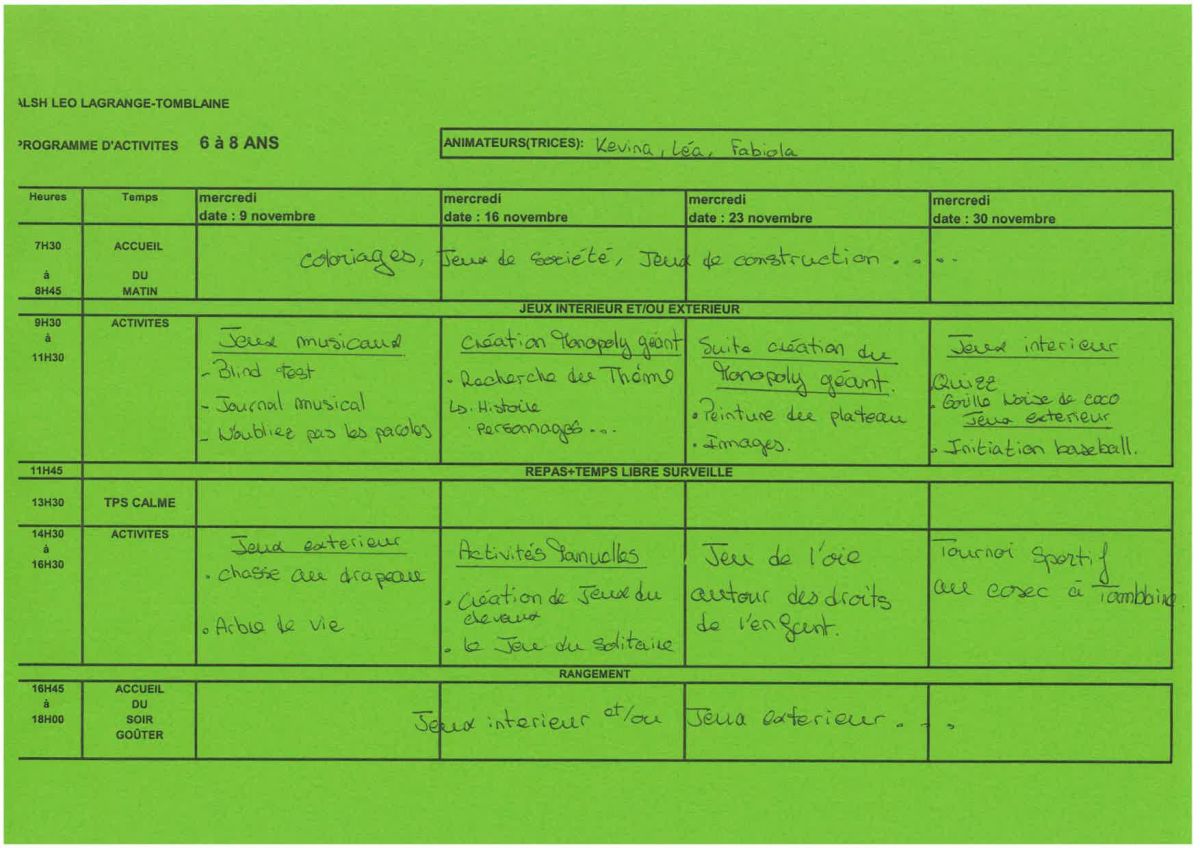 ALSH LEO LAGRANGE-TOMBLAINE
PROGRAMME D'ACTIVITES 6 à 8 ANS
ANIMATEURS(TRICES): Kevina, Léa, Fabiola
Heures Temps mercredi mercredi mercredi mercredi
date : 9 novembre date : 16 novembre date : 23 novembre date : 30 novembre
7H30 ACCUEIL
à DU
8H45 MATIN
coloriages, Jeux de société, Jeux de construction . . . . .
JEUX INTERIEUR ET/OU EXTERIEUR
9H30 ACTIVITES
à
11H30
Jeux musicaux
- Blind test
- Journal musical
- N'oubliez pas les paroles
Création Monopoly géant
• Recherche du Thème
↳ Histoire
• Personnages...
Suite création du
Monopoly géant.
• Peinture du plateau
• Images.
Jeux interieur
Quizz
• Gorille Noise de coco
Jeux exterieur
• Initiation baseball.
11H45 REPAS+TEMPS LIBRE SURVEILLE
13H30 TPS CALME
14H30 ACTIVITES
à
16H30
Jeux exterieur
• chasse au drapeau
• Arbre de vie
Activités Manuelles
• Création de Jeux du
chevaux
• le Jeu du Solitaire
Jeu de l'oie
autour des droits
de l'enfant.
Tournoi Sportif
au cosec à Tomblaine
RANGEMENT
16H45 ACCUEIL
à DU
18H00 SOIR
GOÛTER
Jeux interieur et/ou Jeux exterieur . . . .